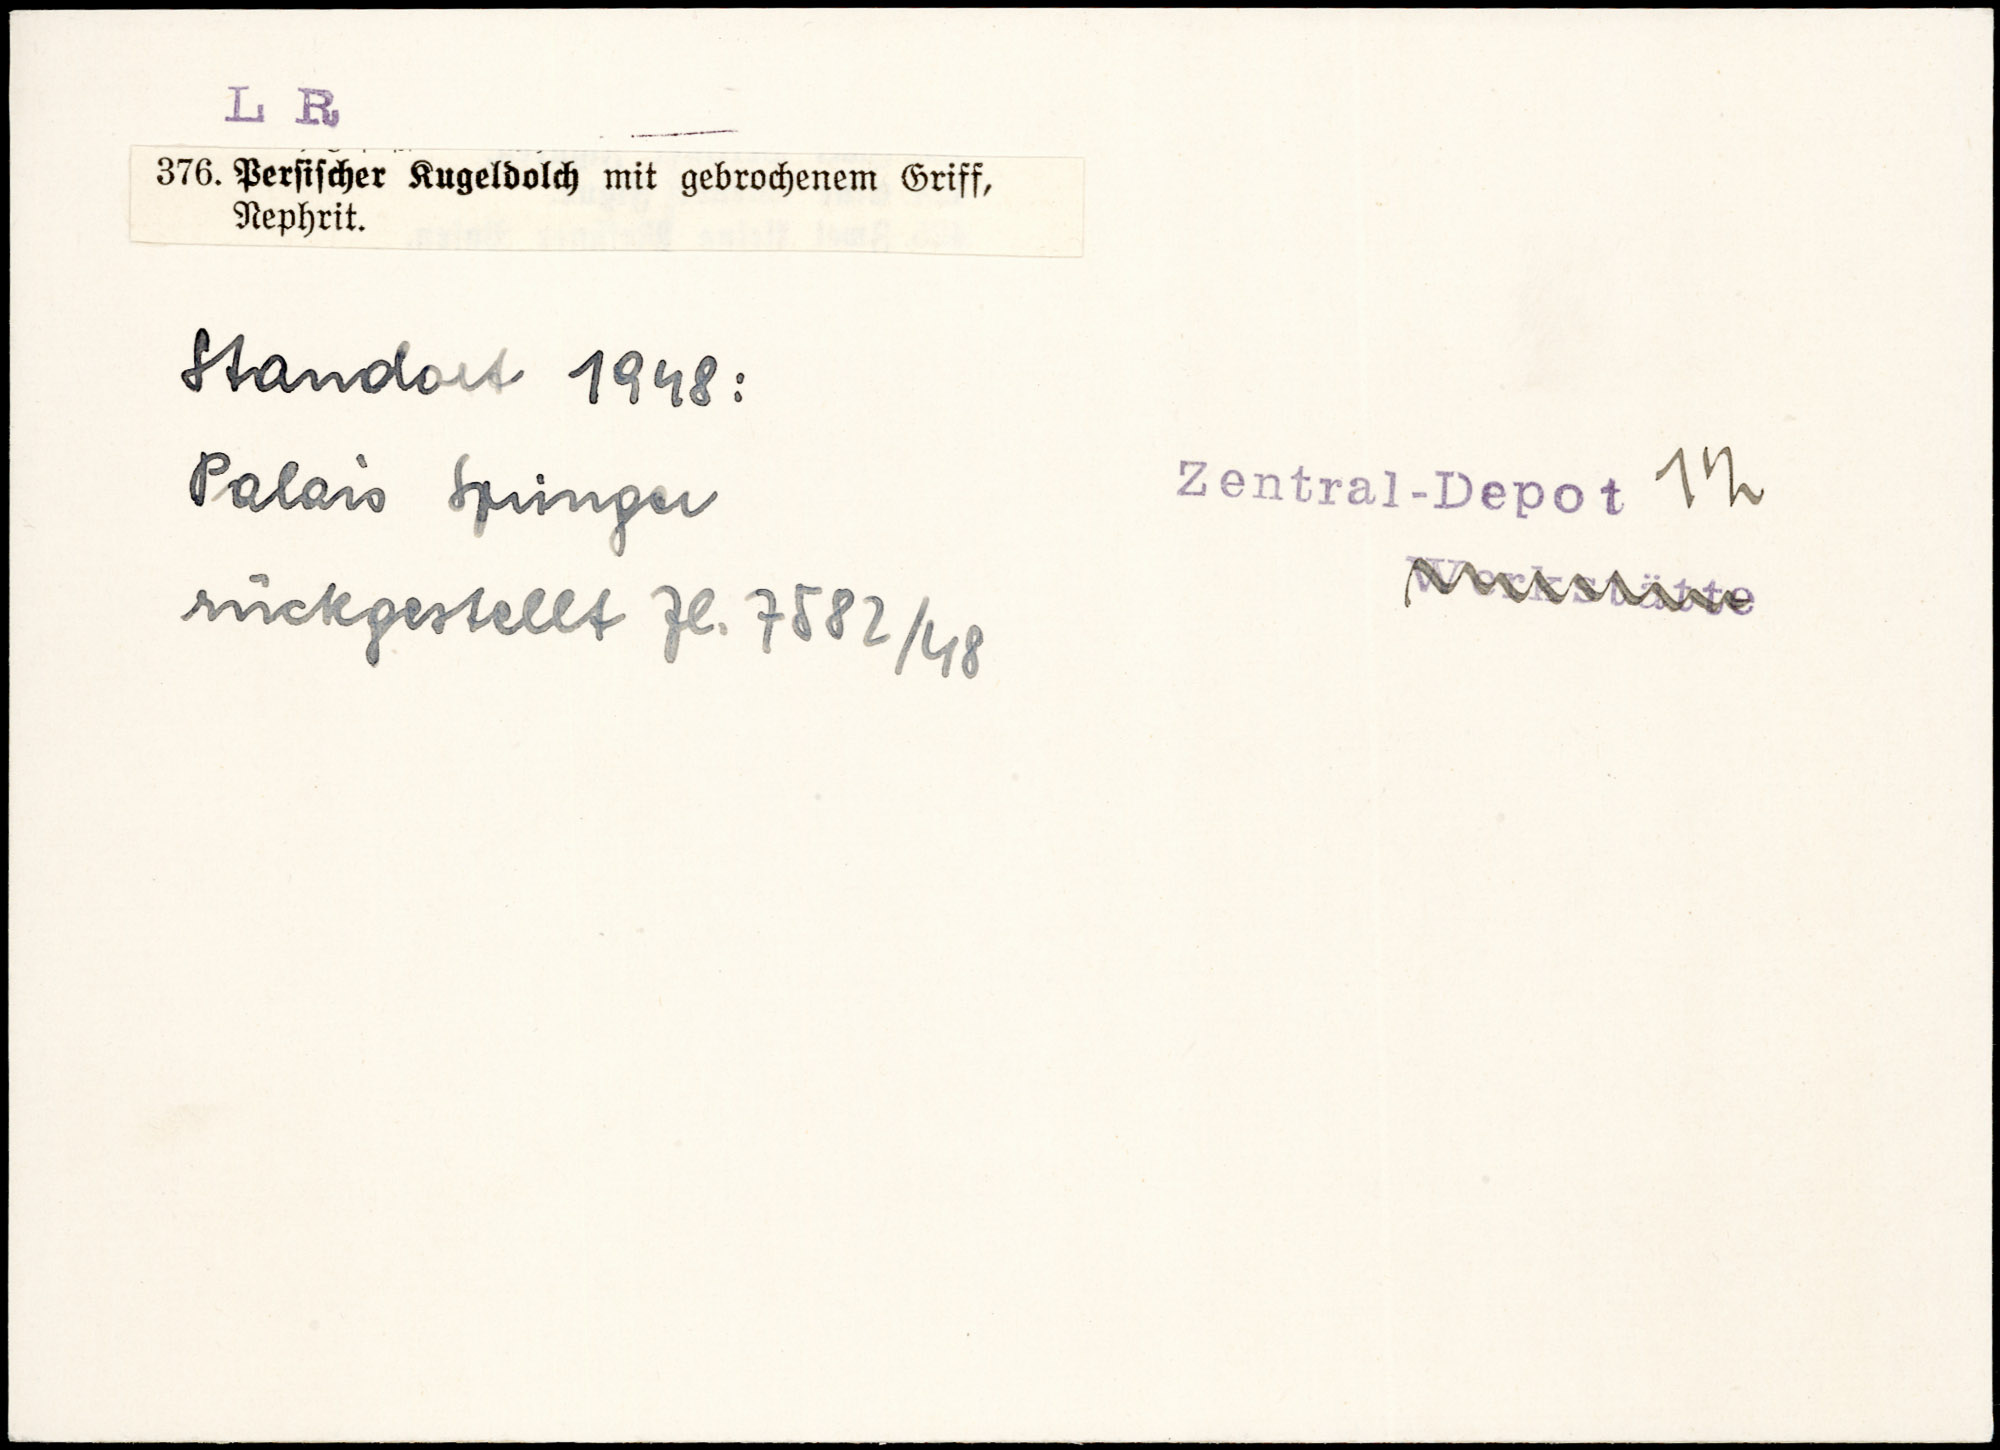 L R
376. Persischer Kugeldolch mit gebrochenem Griff,
Nephrit.
Standort 1948:
Palais Springer
Zentral-Depot
Werkstätte
rückgestellt Zl. 7582/48